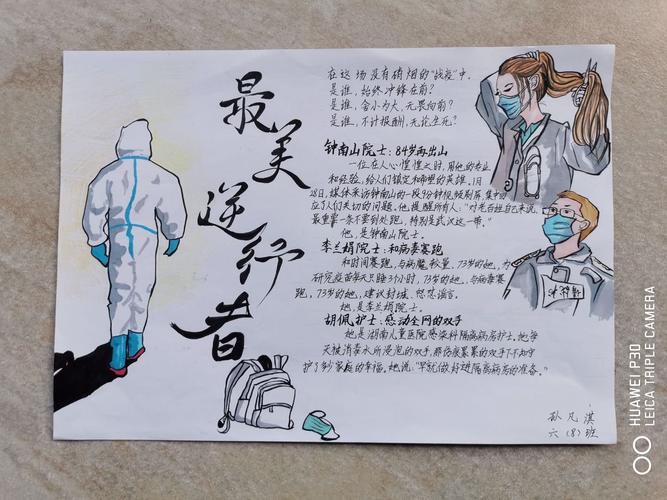 最美逆行者
在这场没有硝烟的"战疫"中,
是谁,始终冲锋在前?
是谁,舍小为大,无畏向前?
是谁,不计报酬,无论生死?
钟南山院士:84岁再出山
一位在人心惶惶之时,用他的专业
和经验,给人们镇定和希望的英雄。1月
28日,媒体采访钟南山的一段9分钟视频刷屏,集中回
应了人们关切的问题。他提醒所有人:"对老百姓自己来说,
最重要一条不要到处跑,特别是武汉这一带。"
他,是钟南山院士。
李兰娟院士:和病毒赛跑
和时间赛跑,与病魔较量,73岁的她,为
研究疫苗每天只睡3小时,73岁的她,与病毒赛
跑,73岁的她,建议封城,怒怼谣言。
她,是李兰娟院士。
胡佩护士:感动全网的双手
她是湖南儿童医院感染科隔离病房护士。她每
天被消毒水所浸泡的双手,那伤痕累累的双手下不知守
护了多少家庭的幸福。她说:"早就做好进隔离病房的准备。"
孙凡淇
六(8)班
HUAWEI P30
LEICA TRIPLE CAMERA